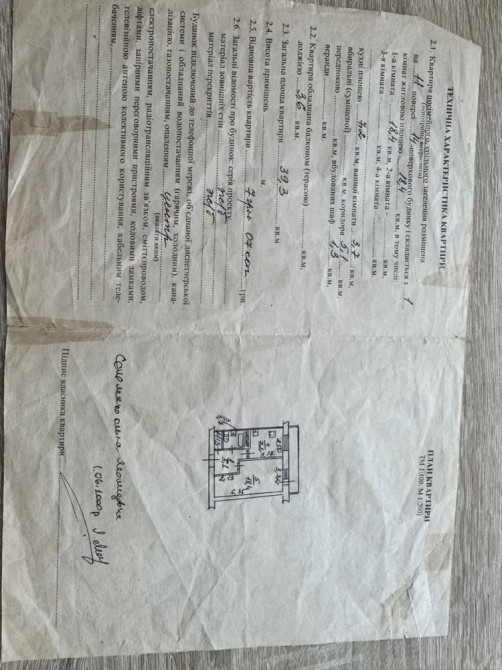 ТЕХНІЧНА ХАРАКТЕРИСТИКА КВАРТИРИ
2.1. Квартира приватного, спільного заселення розміщена
(непотрібне викреслити)
на 11 поверсі 14-поверхового будинку і складається з 1
кімнат житловою площею 18,4 кв.м, в тому числі:
1-а кімната 18,4 кв.м, 2-а кімната кв.м,
3-я кімната кв.м, 4-а кімната кв.м,
кухні площею 7,2 кв.м, ванної кімнати 3,7 кв.м,
вбиральні (суміщеної) кв.м, коридора кв.м,
передпокою кв.м, вбудованих шаф 1,3 кв.м,
веранди кв.м.
2.2. Квартира обладнана балконом (терасою)
лоджією 3,6 кв.м.
2.3. Загальна площа квартири 39,3 кв.м
2.4. Висота приміщень м.
2.5. Відновна вартість квартири грн.
2.6. Загальні відомості про будинок: серія проєкту
матеріал зовнішніх стін
матеріал перекриттів
Будинок підключений до телефонної мережі, об'єднаної диспетчерської
системи і обладнаний водопостачанням (гарячим, холодним), кана-
лізацією, газопостачанням, опаленням
(вказати яким)
електропостачанням, радіотрансляційним зв'язком, сміттєпроводом,
ліфтами, запірними переговорними пристроями, кодовими замками,
телевізійною антеною колективного користування, кабельним теле-
баченням.
ПЛАН КВАРТИРИ
(М 1:100, М 1:200)
18,4
Підпис власника квартири